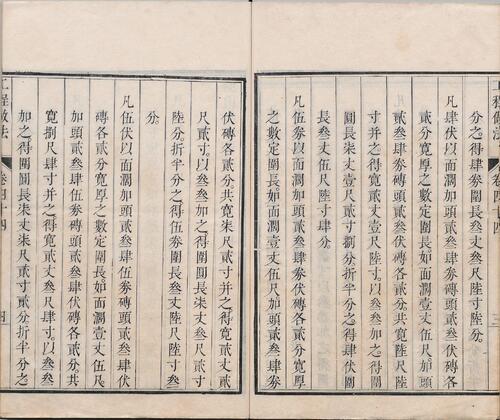 工程做法
卷四十四
三
分之得肆劵圍長叁丈陸尺陸寸叁
分
凡肆伏以面濶加頭貳叁肆劵磚頭貳叁肆伏磚各
貳分寬厚之數定圍長如面濶壹丈伍尺加頭
貳叁肆劵磚頭貳叁伏磚各貳分共寬陸尺
并之得寬貳丈壹尺陸寸以叁叁加之得圍
圓長柒丈壹尺貳寸捌分折半分之得肆伏圍
長叁丈伍尺陸寸肆分
凡伍劵以面濶加頭貳叁肆劵磚頭貳叁肆伏磚各貳分寬厚
之數定圍長如面濶壹丈伍尺加頭貳叁肆劵
伏磚各貳分共寬柒尺貳寸并之得寬貳丈貳
尺貳寸以叁叁加之得圍圓長柒丈叁尺貳寸陸
分折半分之得伍劵圍長叁丈陸尺陸寸叁
分
凡伍伏以面濶加頭貳叁肆伍劵磚頭貳叁肆伏
磚各貳分寬厚之數定圍長如面濶壹丈伍尺
加頭貳叁肆伍劵磚頭貳叁肆伏磚各貳分共
寬捌尺肆寸并之得寬貳丈叁尺肆寸以叁叁
加之得圍圓長柒丈柒尺貳寸貳分折半分之
工程做法
卷四十四
四